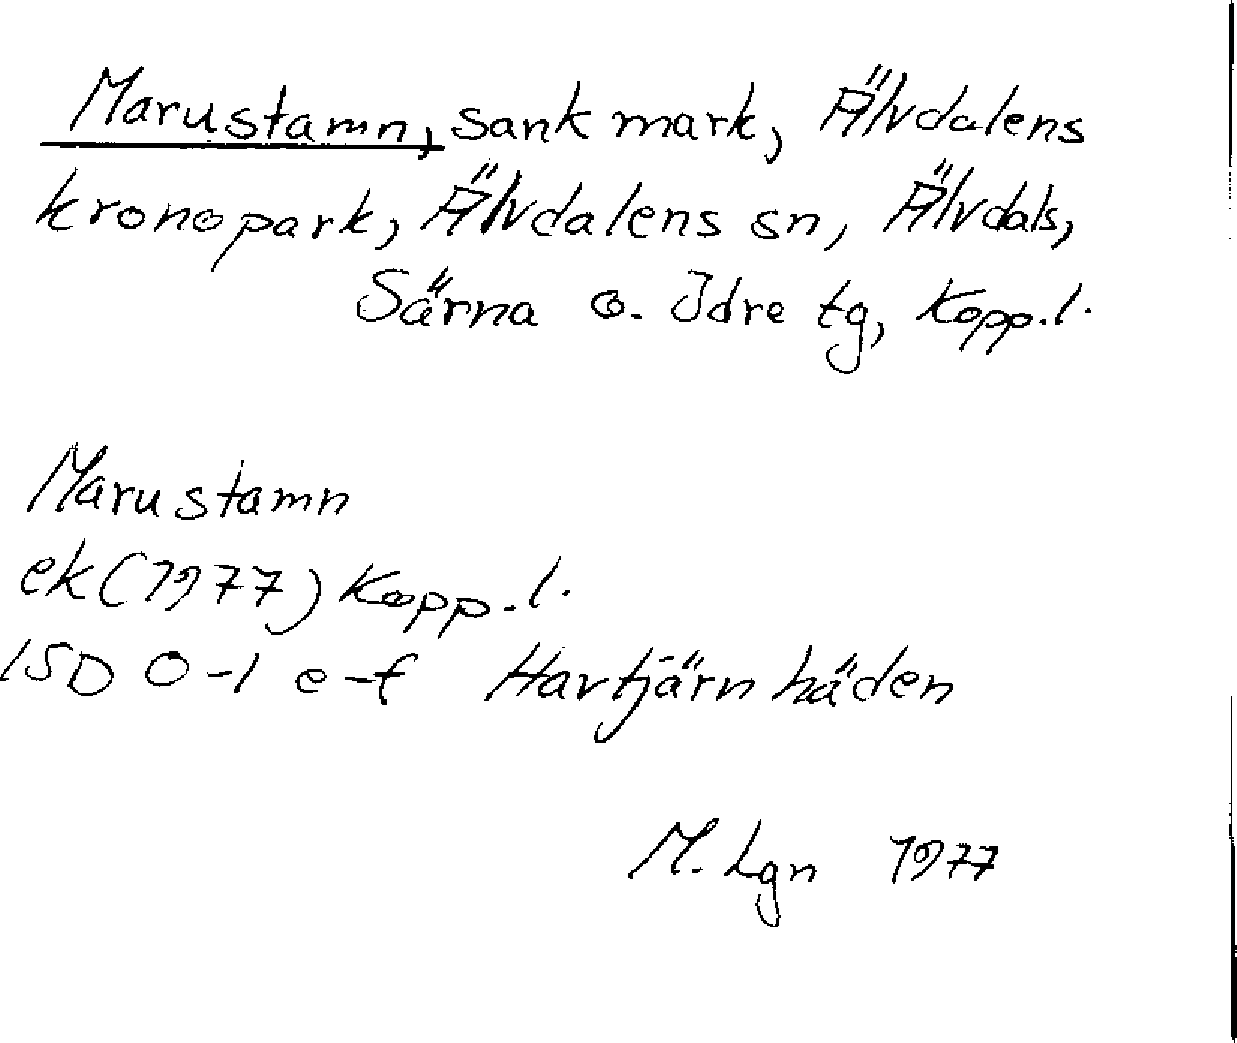 Marustamn, sank mark, Älvdalens
kronopark, Älvdalens sn, Älvdals,
Särna o. Idre tg, Kopp.l.
Marustamn
ek(1977) Kopp.l.
15D 0-1 e-f Havtjärnhäden
M. Lgn 1977